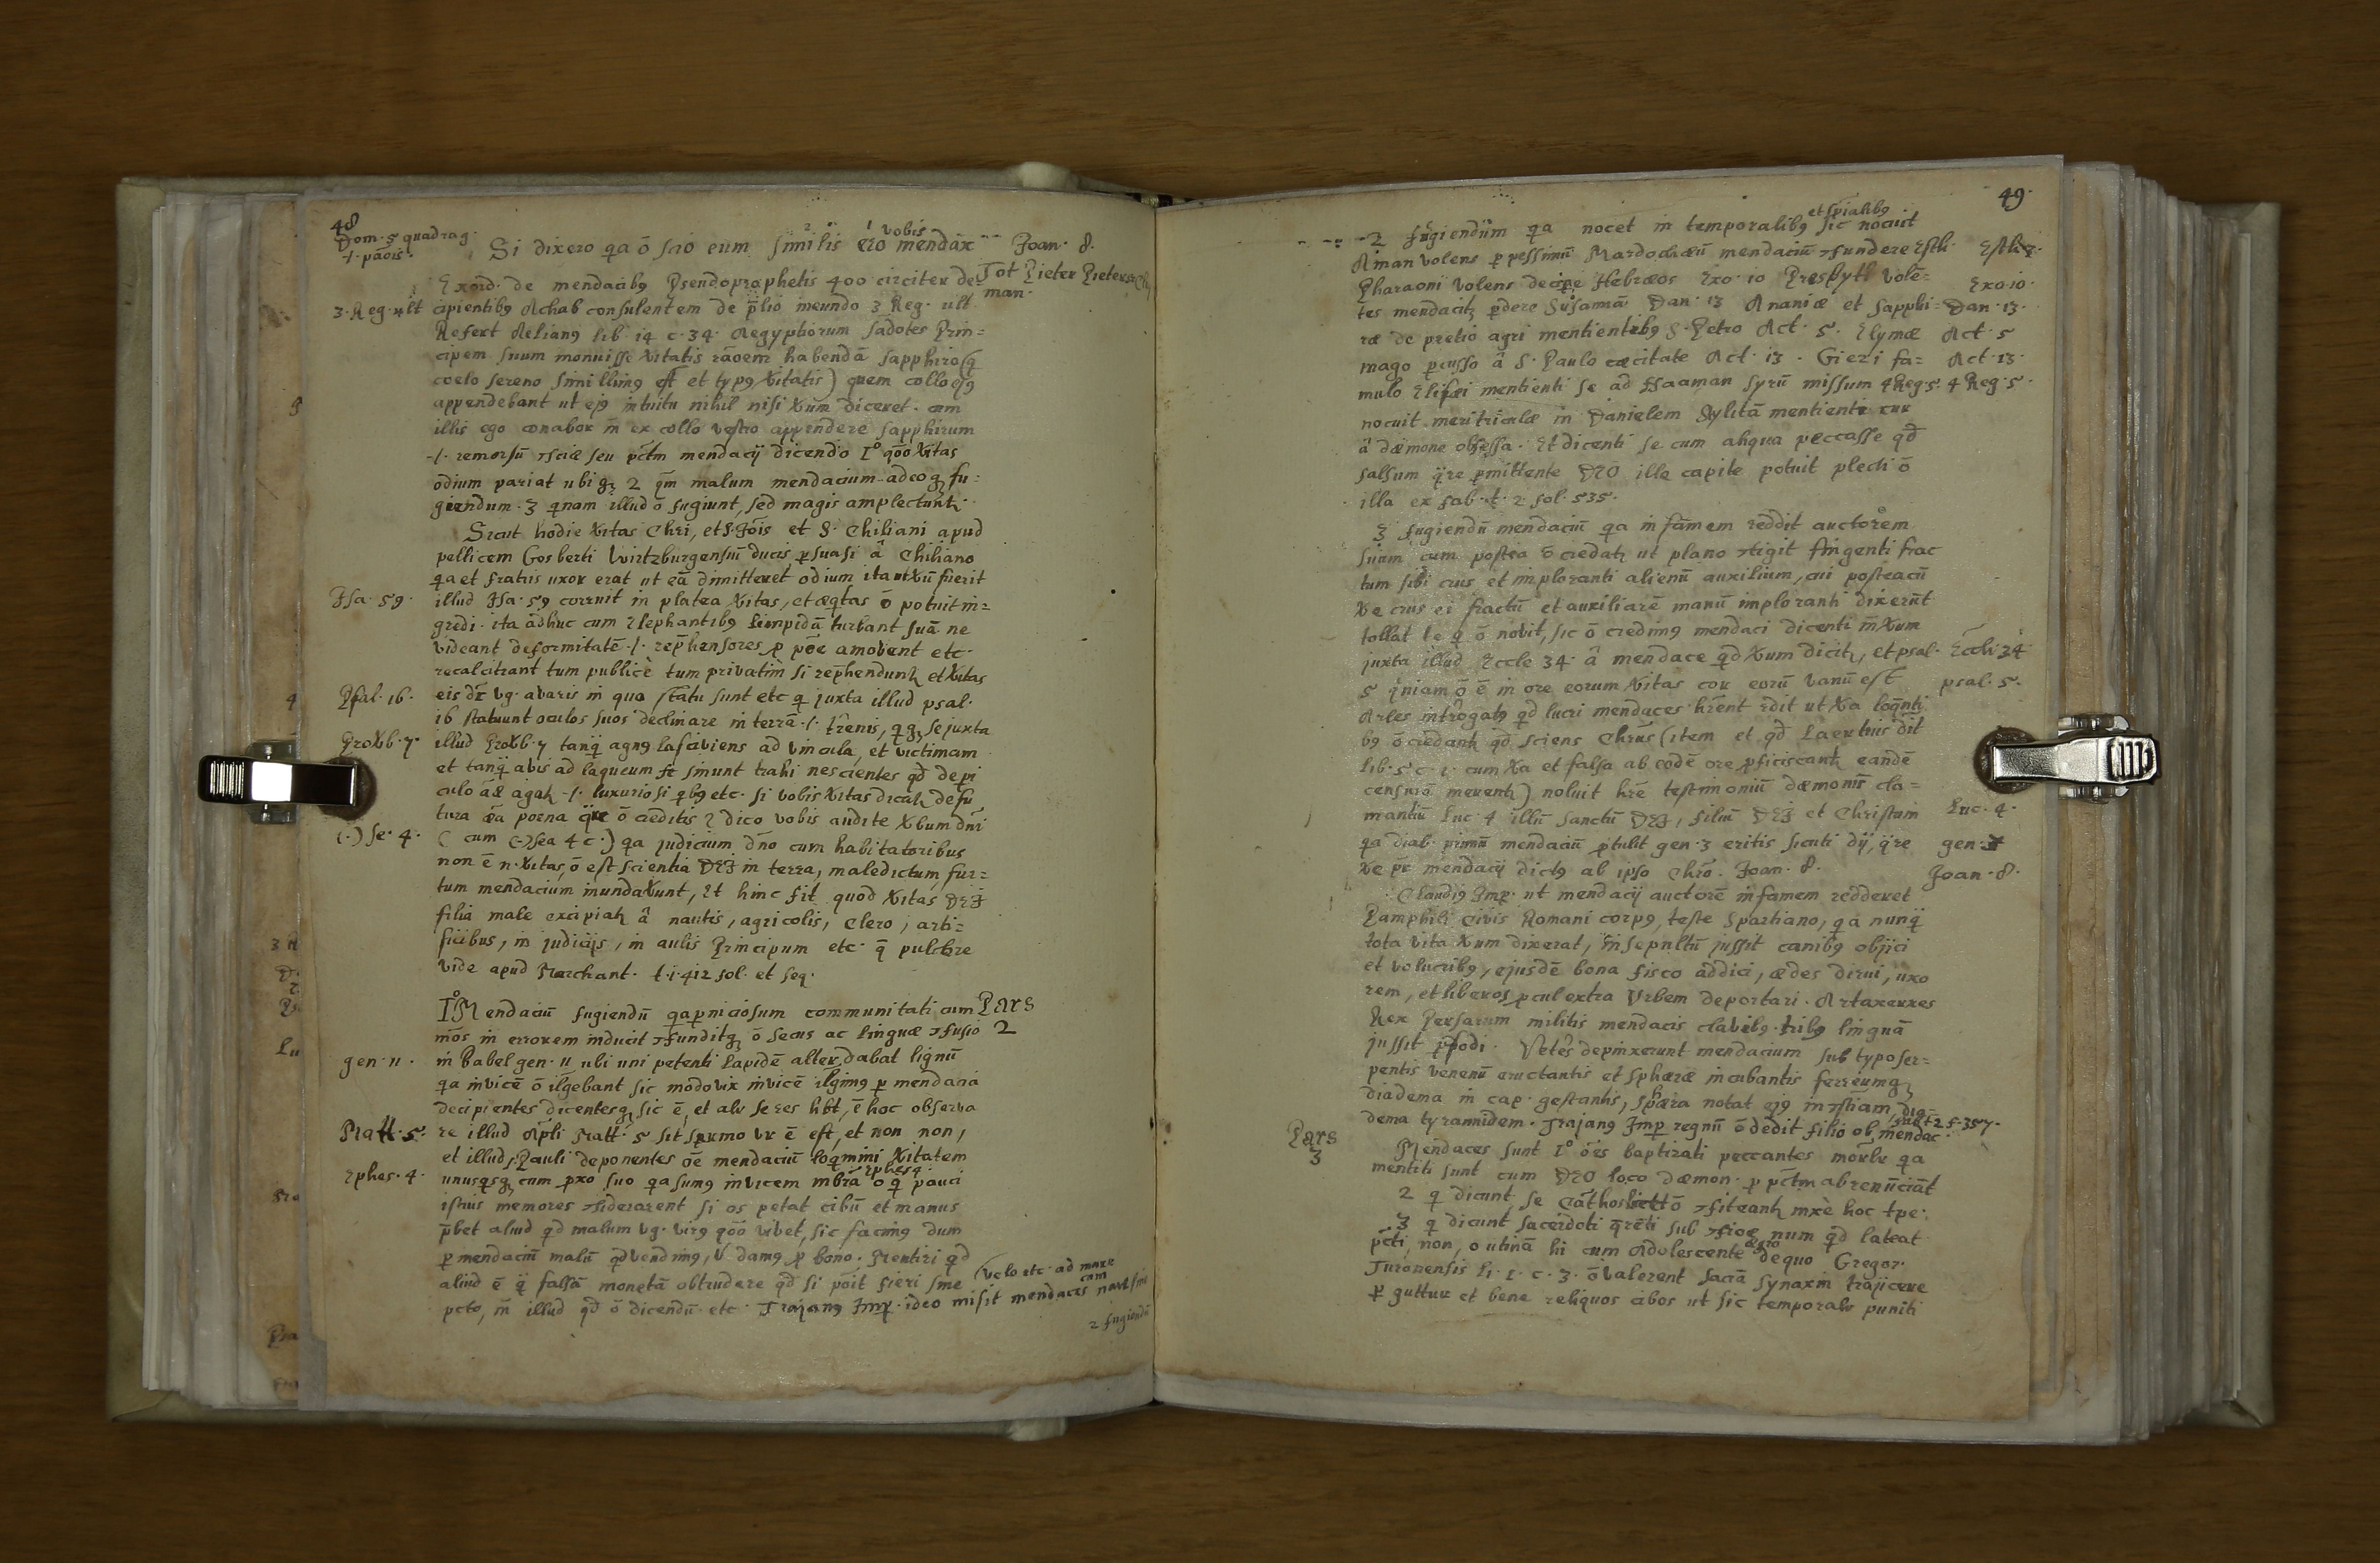 48
Dom. 5 quadrag.
Si dixero qa ō scio eum similis ero vobis mendax Joan. 8.
Exord. de mendacibꝰ Pseudoprophetis 400 circiter de
Tot Pieter
man.
3. Reg. ult cipientibꝰ Achab consulentem de p̄lio ineundo 3 Reg. ult
Refert Aelianꝰ lib. 14 c. 34. Aegyptiorum sādotes Prin=
cipem suum monuisse Xitatis rāoem habendā sapphiro (q̄
coelo sereno simillimꝰ est et typꝰ Xitatis) quem collo
appendebant ut ejꝰ intuitu nihil nisi Xum diceret. cum
illis ego conabor m̄ ex collo vestro appendere sapphirum
-/. remorsū ꝯsciæ seu pc̄tm mendacij dicendo Iº qōo Xitas
odium pariat ubiqꝫ 2 qm̄ malum mendacium adeoqꝫ fu=
giendum. 3 quam illud ō fugiunt, sed magis amplectunt.
Sicut hodie Xitas Chri, et S. Jōis et S. Chiliani apud
pellicem Gosberti Wirtzburgensiū ducis ꝑsuasi â Chiliano
qa et fratris uxor erat ut eā dimitteret odium ita utXū fuerit
Isa. 59. illud Isa. 59 corruit in platea Xitas, et æqtas ō potuit in=
gredi. ita adhuc cum Elephantibꝰ limpidā turbant suā ne
videant deformitatē -/. rep̄hensores ꝑ amovent etc.
recalcitrant tum publicè tum privatim si rep̄hendunt et Xitas
Psal. 16. eis dr̄ vg. avaris in quo statu sunt etc q juxta illud psal.
16 statuunt oculos suos declinare in terrā -/. tr̄enis, q qꝫ se juxta
ProXb. 7. illud ProXb. 7 tanq̄ agnꝰ lasciviens ad vincula, et victimam
et tanq̄ avis ad laqueum se sinunt trahi nescientes qd de pi
culo āæ agat -/. luxuriosi qbꝰ etc. si vobis Xitas dicat de fu
tura poena ō creditis dico vobis audite Xbum dn̄i
(.) se. 4. ( cum (-) sea 4 c.) qa judicium dn̄o cum habitatoribus
non ē n. Xitas, ō est scientia DEJ in terra, maledictum, fur=
tum mendacium inundaXunt, Et hinc fit quod Xitas DEJ
filia male excipiat â nautis, agricolis, Clero, arti=
ficibus, in judicijs, in aulis Principum etc. q̄ pulchre
vide apud Marchant. t. 1. 412 fol. et seq.
IºMendaciū fugiendū qa ꝑniciosum communitati cum Pars
mōs in errorem inducit ꝯfunditqꝫ ō secus ac linguæ ꝯfusio 2
gen. 11. in Babel gen. 11 ubi uni petenti lapidē alter dabat lignū
qa invicē ō ilgebant sic modo vix invicē ilgimꝰ ꝑ mendacia
decipientes dicentesqꝫ sic ē, et alr se res hbt, ē hoc observa
Matt. 5. re illud Apli Matt. 5 sit sermo vr ē est, et non non,
et illud S. Pauli deponentes oē mendaciū loqmini Xitatem
Ephes. 4
Ephes. 4. unusqsqꝫ cum pxo suo qa sumꝰ invicem mbrā o q pauci
istius memores ꝯsiderarent si os petat cibū et manus
p̄bet aliud qd malum vg. virꝰ qōo vivet, sic facimꝰ dum
ꝑ mendaciū malū qd vendimꝰ, V damꝰ ꝓ bono. Mentiri qd
aliud ē q̄ falsā monetā obtrudere qd si pōit fieri sine (velo etc. ad mare
pcto, m̄ illud qd ō dicendū etc. Trajanꝰ Imp. ideo misit mendaces navi sine
2 fugiendū
49.
2 fugiendum qa nocet in temporalibꝰ et spialibꝰ sic nocuit
Aman volens ꝑ pessimū Mardochæū mendaciū ꝯfundere Esth. Esth
Pharaoni volens decipe Hebræos Exo. 10 Presbyti volē= Exo. 10.
tes mendacit ꝑdere Susannā Dan. 13 Ananiæ et Sapphi= Dan. 13.
ræ de pretio agri mentientibꝰ S. Petro Act. 5. Elymæ Act. 5
mago ꝑcusso â S. Paulo cæcitate Act. 13. Giezi fa= Act. 13.
mulo Elisæi mentienti se ad Naaman Syrū missum 4 Reg. 5. 4 Reg. 5.
nocuit meritriculæ in Danielem Stylitā mentienti cur
â dæmone obsessa. Et dicenti se cum aliqua peccasse qd
falsum qre ꝑmittente DEO ille capite potuit plecti ō
illa ex fab. t. 2 fol. 535.
3 fugiendū mendaciū qa in famem reddit auctorem
suum cum postea ō credat ut plano ꝯtigit fingenti frac
tum sibi crus et imploranti alienū auxilium, cui posteacū
Xe crus ei fractū et auxiliarē manū imploranti dixerūt
tollat te q ō novit, sic ō credimꝰ mendaci dicenti m̄ Xum
juxta illud Eccle 34. â mendace qd Xum dicit, et psal. Eccli 34
5 qniam ō ē in ore eorum Xitas cor eorū vanū est psal. 5.
Arles intrōgatꝰ qd lucri mendaces hr̄ent rd̄it ut Xa loqnti
bꝰ ō credant qd sciens Chrūs (item et qd Laertius dit
lib. 5 c. 1. cum Xa et falsa ab eodē ore ꝓficiscant eandē
censurā merent) noluit hr̄e testimoniū dæmonis cla=
mantiū Luc. 4 illū sanctū DEJ, filiū DEJ et Christum Luc. 4.
qa diab. primū mendaciū ꝓtulit gen. 3 eritis sicuti dij, qre gen. 3
Xe pr̄ mendacij dictꝰ ab ipso Chrō. Joan. 8. Joan. 8.
Claudiꝰ Imp. ut mendacij auctorē infamem redderet
Pamphili Civis Romani corpꝰ, teste Spartiano, qa nunq̄
tota vita Xum dixerat, insepultū jussit canibꝰ objici
et volucribꝰ, ejusdē bona fisco addici, ædes dirui, uxo
rem, et liberos ꝓcul extra Vrbem deportari. Artaxerxes
Rex Persarum militis mendacis clavibꝰ tribꝰ linguā
jussit ꝑfodi. Veterēs depinxerunt mendacium sub typo ser=
pentis venenū eructantis et sphæræ incubantis ferreumqꝫ
diadema in cap. gestantis, sphæra notat ejꝰ inꝯstiam, dia
dema tyrannidem. Trajanꝰ Imp. regnū ō dedit filio ob mendac.
Pars
3
Mendaces sunt Iº ōēs baptizati peccantes morlr qa
mentiti sunt cum DEO loco dæmon. ꝑ pc̄tm abrenūciāt
2 q dicunt se Cathos ō ꝯfiteant mxè hoc tpe.
3 q dicunt sacerdoti sub ꝯfioe num qd lateat
pcti, non, o utinā hi cum Adolescente de quo Gregor.
Turonensis li. 1. c. 3. ō valerent sacrā Synaxin trajicere
ꝑ guttur et bene reliquos cibos ut sic temporalr puniti